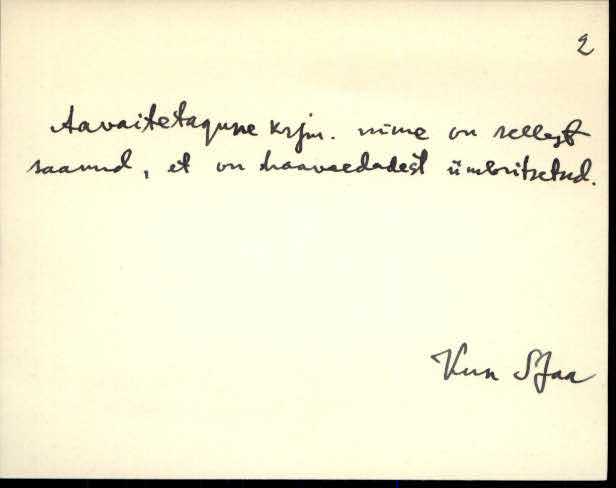 2
Aavaitetagune krjm. nime on sellest
saanud, et on haavaedadest ümbritsetud.
Kuu SJaa